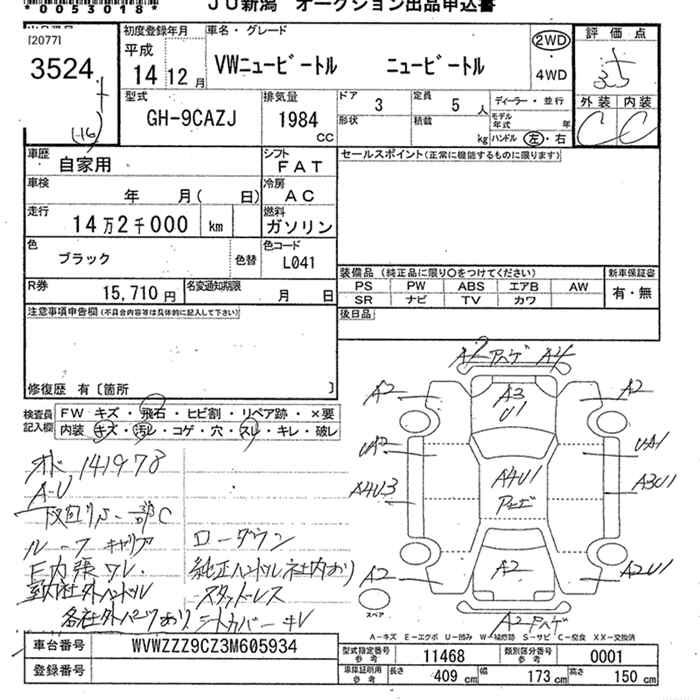 *0053018*
JU新潟 オークション出品申込書
[20771
3524
(-16)
初度登録年月
平成
14 12月
車名・グレード
VWニュービートル ニュービートル
2WD
・
4WD
評価点
3.5
外装 内装
C C
型式
GH-9CAZJ
排気量
1984
CC
ドア
3
定員
5 人
ディーラー・並行
形状
積載
kg
モデル年式 年
ハンドル 左・右
車歴
自家用
シフト
FAT
セールスポイント(正常に機能するものに限ります)
車検
年 月( 日)
冷房
AC
走行
14万2千000 km
燃料
ガソリン
色
ブラック
色替
色コード
L041
装備品 (純正品に限り○をつけてください)
新車保証書
PS PW ABS エアB AW
SR ナビ TV カワ
有・無
R券
15,710円
名変通知期限
月 日
後日品
注意事項申告欄(不具合内容等は具体的に記入して下さい)
修復歴 有〔箇所 〕
検査員記入欄
FW キズ・飛石・ヒビ割・リペア跡・×要
内装 キズ・汚レ・コゲ・穴・スレ・キレ・破レ
A2 アスゲ A4
A2
A3
U1
A2
UA1
A4U3
A4U1
A3U1
A2
A2
A2U1
スペア
オド 141978
A-U
ルーフキャリア
ローダウン
純正ハンドル社内おり
スタットレス
シートカバー キレ
A-キズ E-エクボ U-凹み W-補修跡 S-サビ C-腐食 XX-交換済
車台番号
WVWZZZ9CZ3M605934
登録番号
型式指定番号
参考
11468
類別区分番号
参考
0001
車庫証明用
参考
長さ
409 cm
幅
173 cm
高さ
150 cm